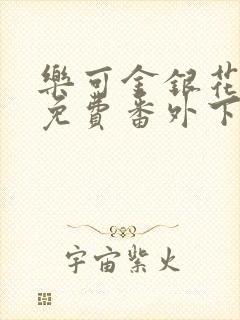 樂可金銀花
免費番外下
宇宙紫火